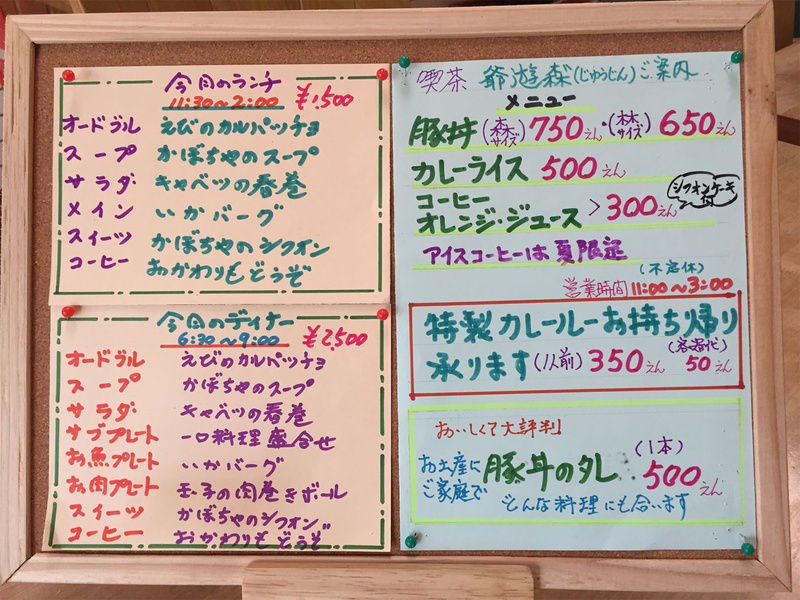 今月のランチ
11:30～2:00 ¥1,500
オードヴル えびのカルパッチョ
スープ かぼちゃのスープ
サラダ キャベツの春巻
メイン いかバーグ
スイーツ かぼちゃのシフォン
コーヒー おかわりもどうぞ
今月のディナー
6:30～9:00 ¥2,500
オードヴル えびのカルパッチョ
スープ かぼちゃのスープ
サラダ キャベツの春巻
サブプレート 一口料理盛合せ
お魚プレート いかバーグ
お肉プレート 玉子の肉巻きボール
スイーツ かぼちゃのシフォン
コーヒー おかわりもどうぞ
喫茶 爺遊森(じゅうじん)ご案内
メニュー
豚丼(森サイズ)750えん・(林サイズ)650えん
カレーライス 500えん
コーヒー
オレンジ・ジュース > 300えん シフォンケーキ付
アイスコーヒーは夏限定
(不定休)
営業時間 11:00～3:00
特製カレールーお持ち帰り
承ります(1人前)350えん (容器代)50えん
おいしくて大評判
お土産にご家庭で 豚丼のタレ (1本)500えん
どんな料理にも合います